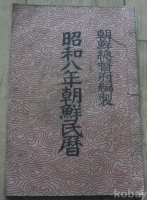 朝鮮總督府編製
昭和八年朝鮮民暦
kobay